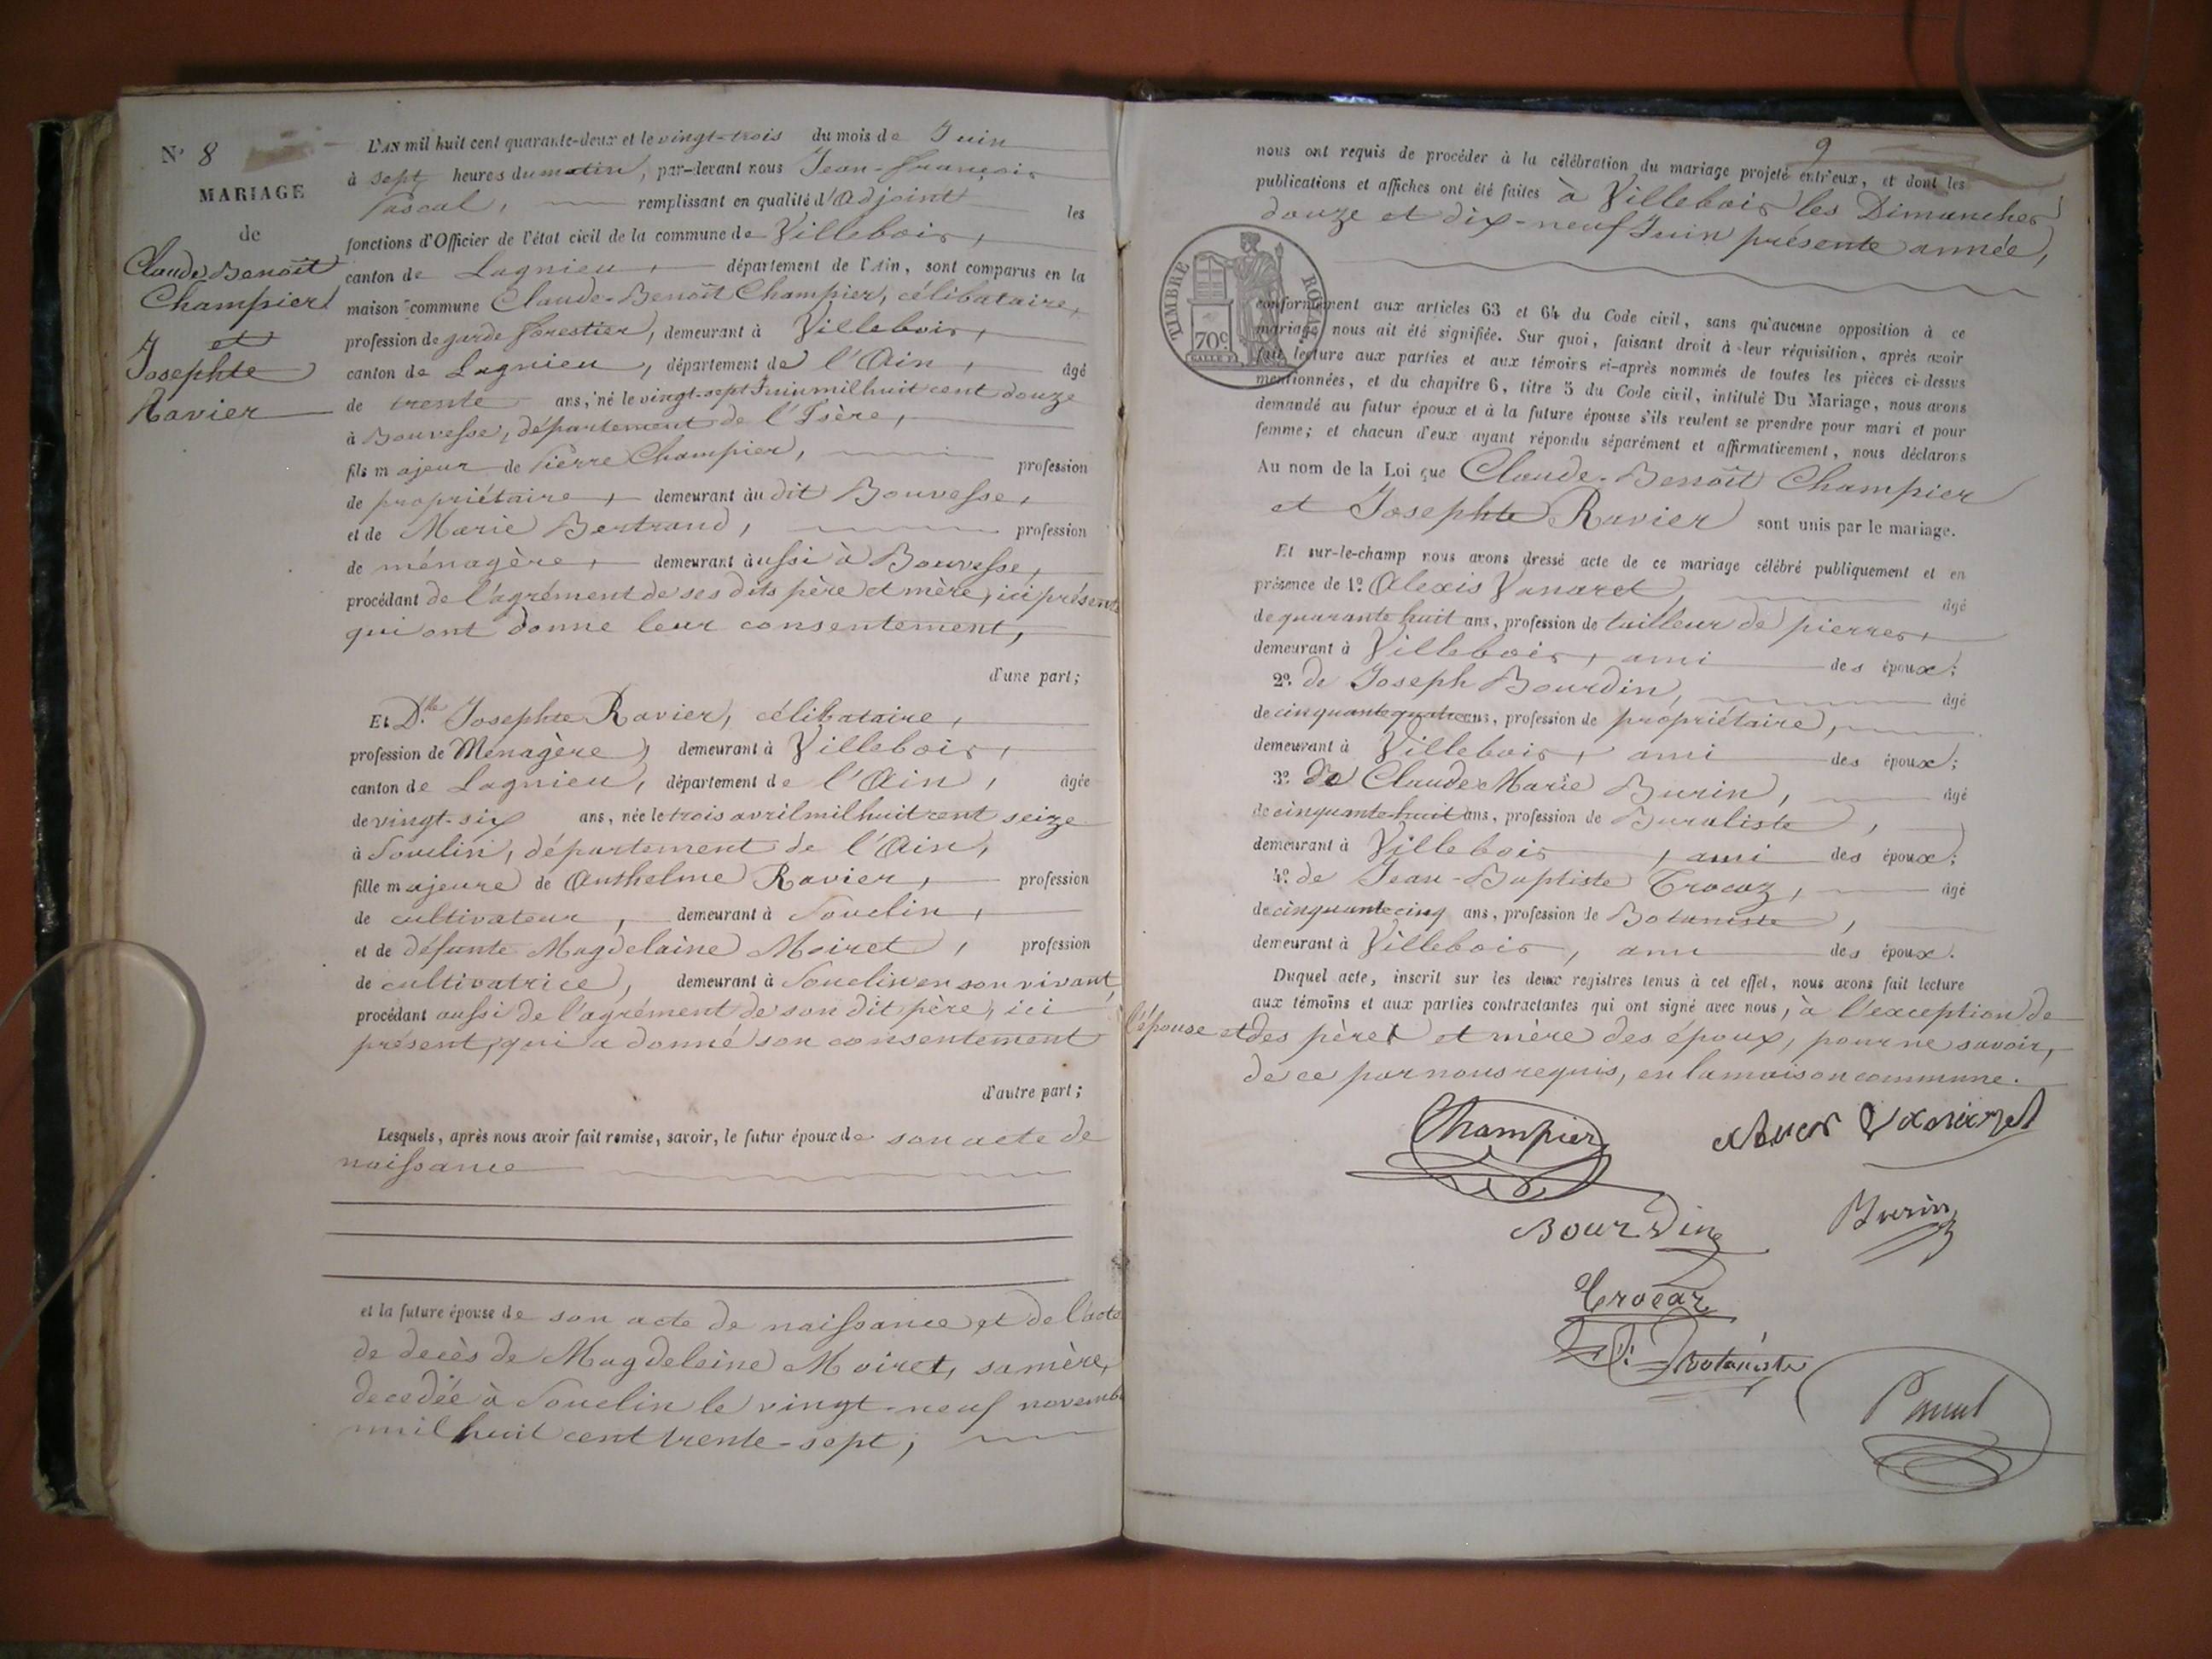 N° 8
MARIAGE
de
Claude Benoît
Champier
et
Josephte
Ravier
L'AN mil huit cent quarante-deux et le vingt-trois du mois de Juin
à sept heures du matin, par-devant nous Jean-François
Pascal, remplissant en qualité d'Adjoint les
fonctions d'Officier de l'état civil de la commune de Villebois,
canton de Lagnieu, département de l'Ain, sont comparus en la
maison commune Claude-Benoît Champier, célibataire,
profession de garde forestier, demeurant à Villebois,
canton de Lagnieu, département de l'Ain, âgé
de trente ans, né le vingt-sept Juin mil huit cent douze
à Bouvesse, département de l'Isère,
fils majeur de Pierre Champier, profession
de propriétaire, demeurant au dit Bouvesse,
et de Marie Bertrand, profession
de ménagère, demeurant aussi à Bouvesse,
procédant de l'agrément de ses dits père et mère, ici présents
qui ont donné leur consentement,
d'une part;
Et D.lle Josephte Ravier, célibataire,
profession de Ménagère, demeurant à Villebois,
canton de Lagnieu, département de l'Ain, âgée
de vingt-six ans, née le trois avril mil huit cent seize
à Souclin, département de l'Ain,
fille majeure de Anthelme Ravier, profession
de cultivateur, demeurant à Souclin,
et de défunte Magdelaine Moiret, profession
de cultivatrice, demeurant à Souclin en son vivant,
procédant aussi de l'agrément de son dit père, ici
présent, qui a donné son consentement
d'autre part;
Lesquels, après nous avoir fait remise, savoir, le futur époux de son acte de
naissance
et la future épouse de son acte de naissance et de l'acte
de decès de Magdeleine Moiret, sa mère,
decedée à Souclin le vingt-neuf novembre
mil huit cent trente-sept;
9
nous ont requis de procéder à la célébration du mariage projeté entr'eux, et dont les
publications et affiches ont été faites à Villebois les Dimanches
douze et dix-neuf Juin présente année,
TIMBRE ROYAL
70c
conformément aux articles 63 et 64 du Code civil, sans qu'aucune opposition à ce
mariage nous ait été signifiée. Sur quoi, faisant droit à leur réquisition, après avoir
fait lecture aux parties et aux témoins ci-après nommés de toutes les pièces ci-dessus
mentionnées, et du chapitre 6, titre 5 du Code civil, intitulé Du Mariage, nous avons
demandé au futur époux et à la future épouse s'ils veulent se prendre pour mari et pour
femme; et chacun d'eux ayant répondu séparément et affirmativement, nous déclarons
Au nom de la Loi que Claude-Benoît Champier
et Josephte Ravier sont unis par le mariage.
Et sur-le-champ nous avons dressé acte de ce mariage célébré publiquement et en
présence de 1° Alexis Vanaret, âgé
de quarante huit ans, profession de tailleur de pierres,
demeurant à Villebois, ami des époux;
2° de Joseph Bourdin, âgé
de cinquante quatre ans, profession de propriétaire,
demeurant à Villebois, ami des époux;
3° de Claude Marie Burin, âgé
de cinquante-huit ans, profession de Buraliste,
demeurant à Villebois, ami des époux;
4° de Jean-Baptiste Trocaz, âgé
de cinquante cinq ans, profession de Botaniste,
demeurant à Villebois, ami des époux.
Duquel acte, inscrit sur les deux registres tenus à cet effet, nous avons fait lecture
aux témoins et aux parties contractantes qui ont signé avec nous, à l'exception de
l'épouse et des pères et mère des époux, pour ne savoir,
de ce par nous requis, en la maison commune.
Champier
Bourdin
Burin
Trocaz
Botaniste
Pascal